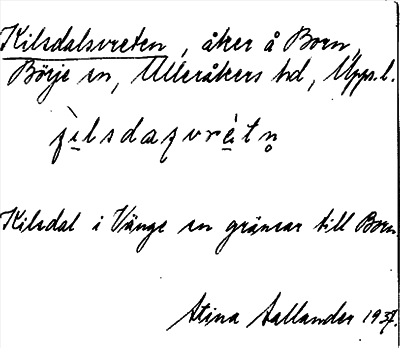 Kilsdalsvreten, åker å Born,
Börje sn, Ulleråkers hd, Upps.l.
Kilsdal i Vänge sn gränsar till Born.
Stina Sallander 1937.